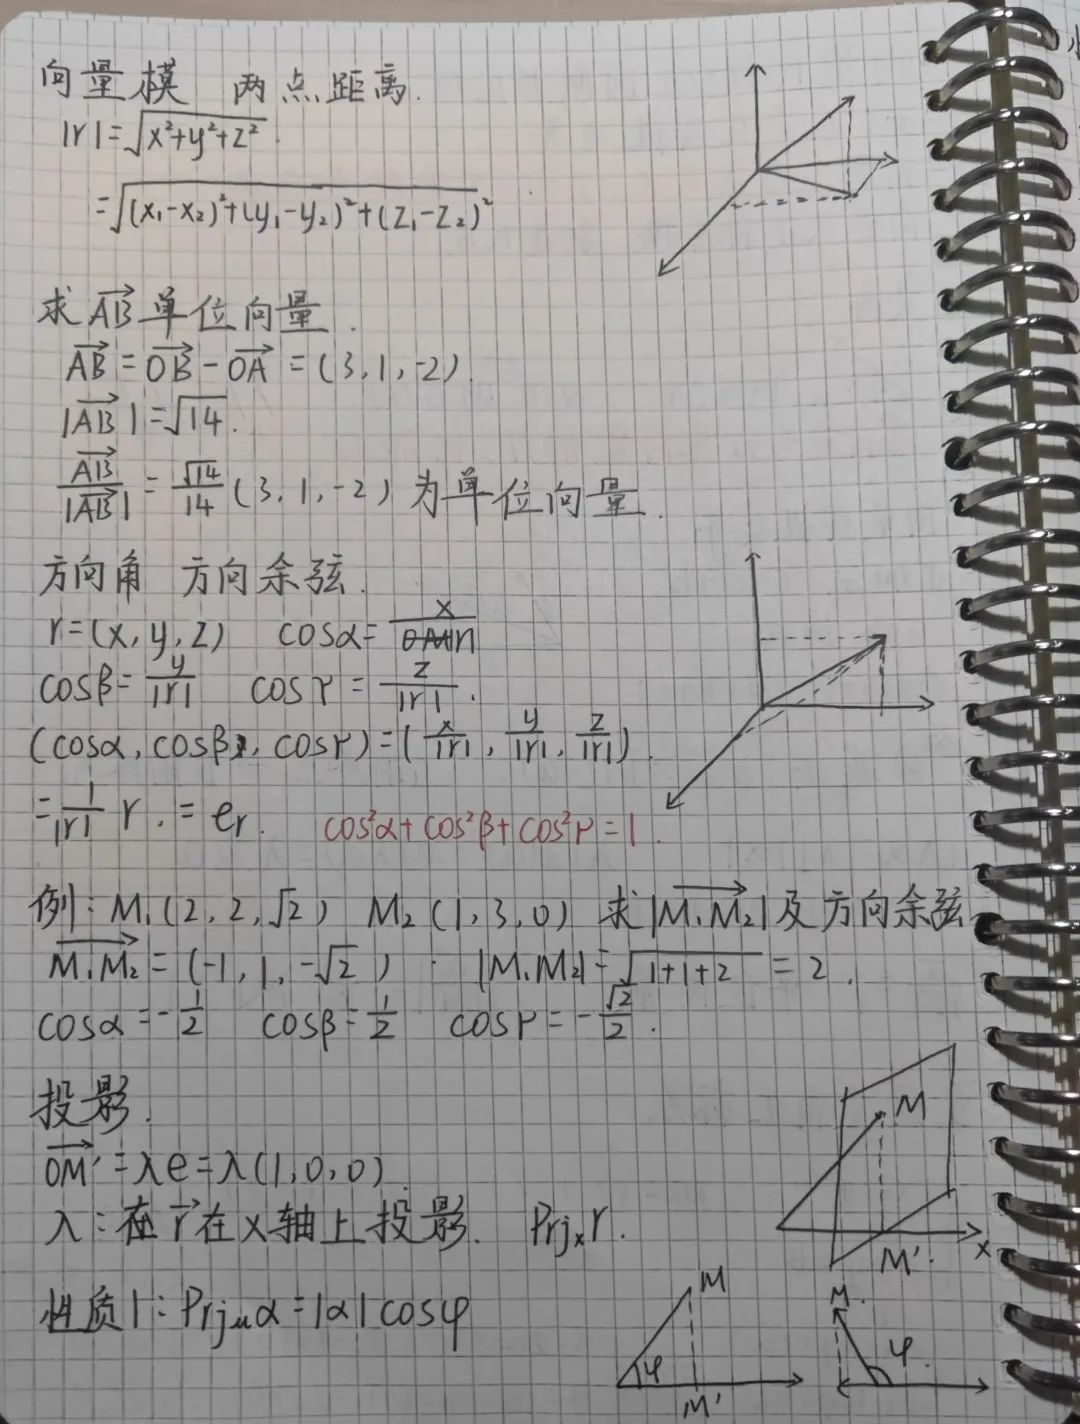 向量模 两点距离.
|r|=√(x²+y²+z²).
=√((x₁-x₂)²+(y₁-y₂)²+(z₁-z₂)²)
求 AB⃗ 单位向量.
AB⃗=OB⃗-OA⃗=(3,1,-2).
|AB⃗|=√14.
AB⃗/|AB⃗|=√14/14(3,1,-2) 为单位向量.
方向角 方向余弦.
r=(x,y,z) cosα=x/|r|
cosβ=y/|r| cosγ=z/|r|.
(cosα, cosβ, cosγ)=(x/|r|, y/|r|, z/|r|).
=1/|r| r.=e_r. cos²α+cos²β+cos²γ=1.
例: M₁(2,2,√2) M₂(1,3,0) 求|M₁M₂⃗|及方向余弦
M₁M₂⃗=(-1,1,-√2). |M₁M₂|=√(1+1+2)=2.
cosα=-1/2 cosβ=1/2 cosγ=-√2/2.
投影.
OM'⃗=λe=λ(1,0,0)
λ:在r⃗在x轴上投影. Prjₓr.
M
x
M'.
性质1: Prj_uα=|α|cosφ
M
φ
M'
M.
φ.